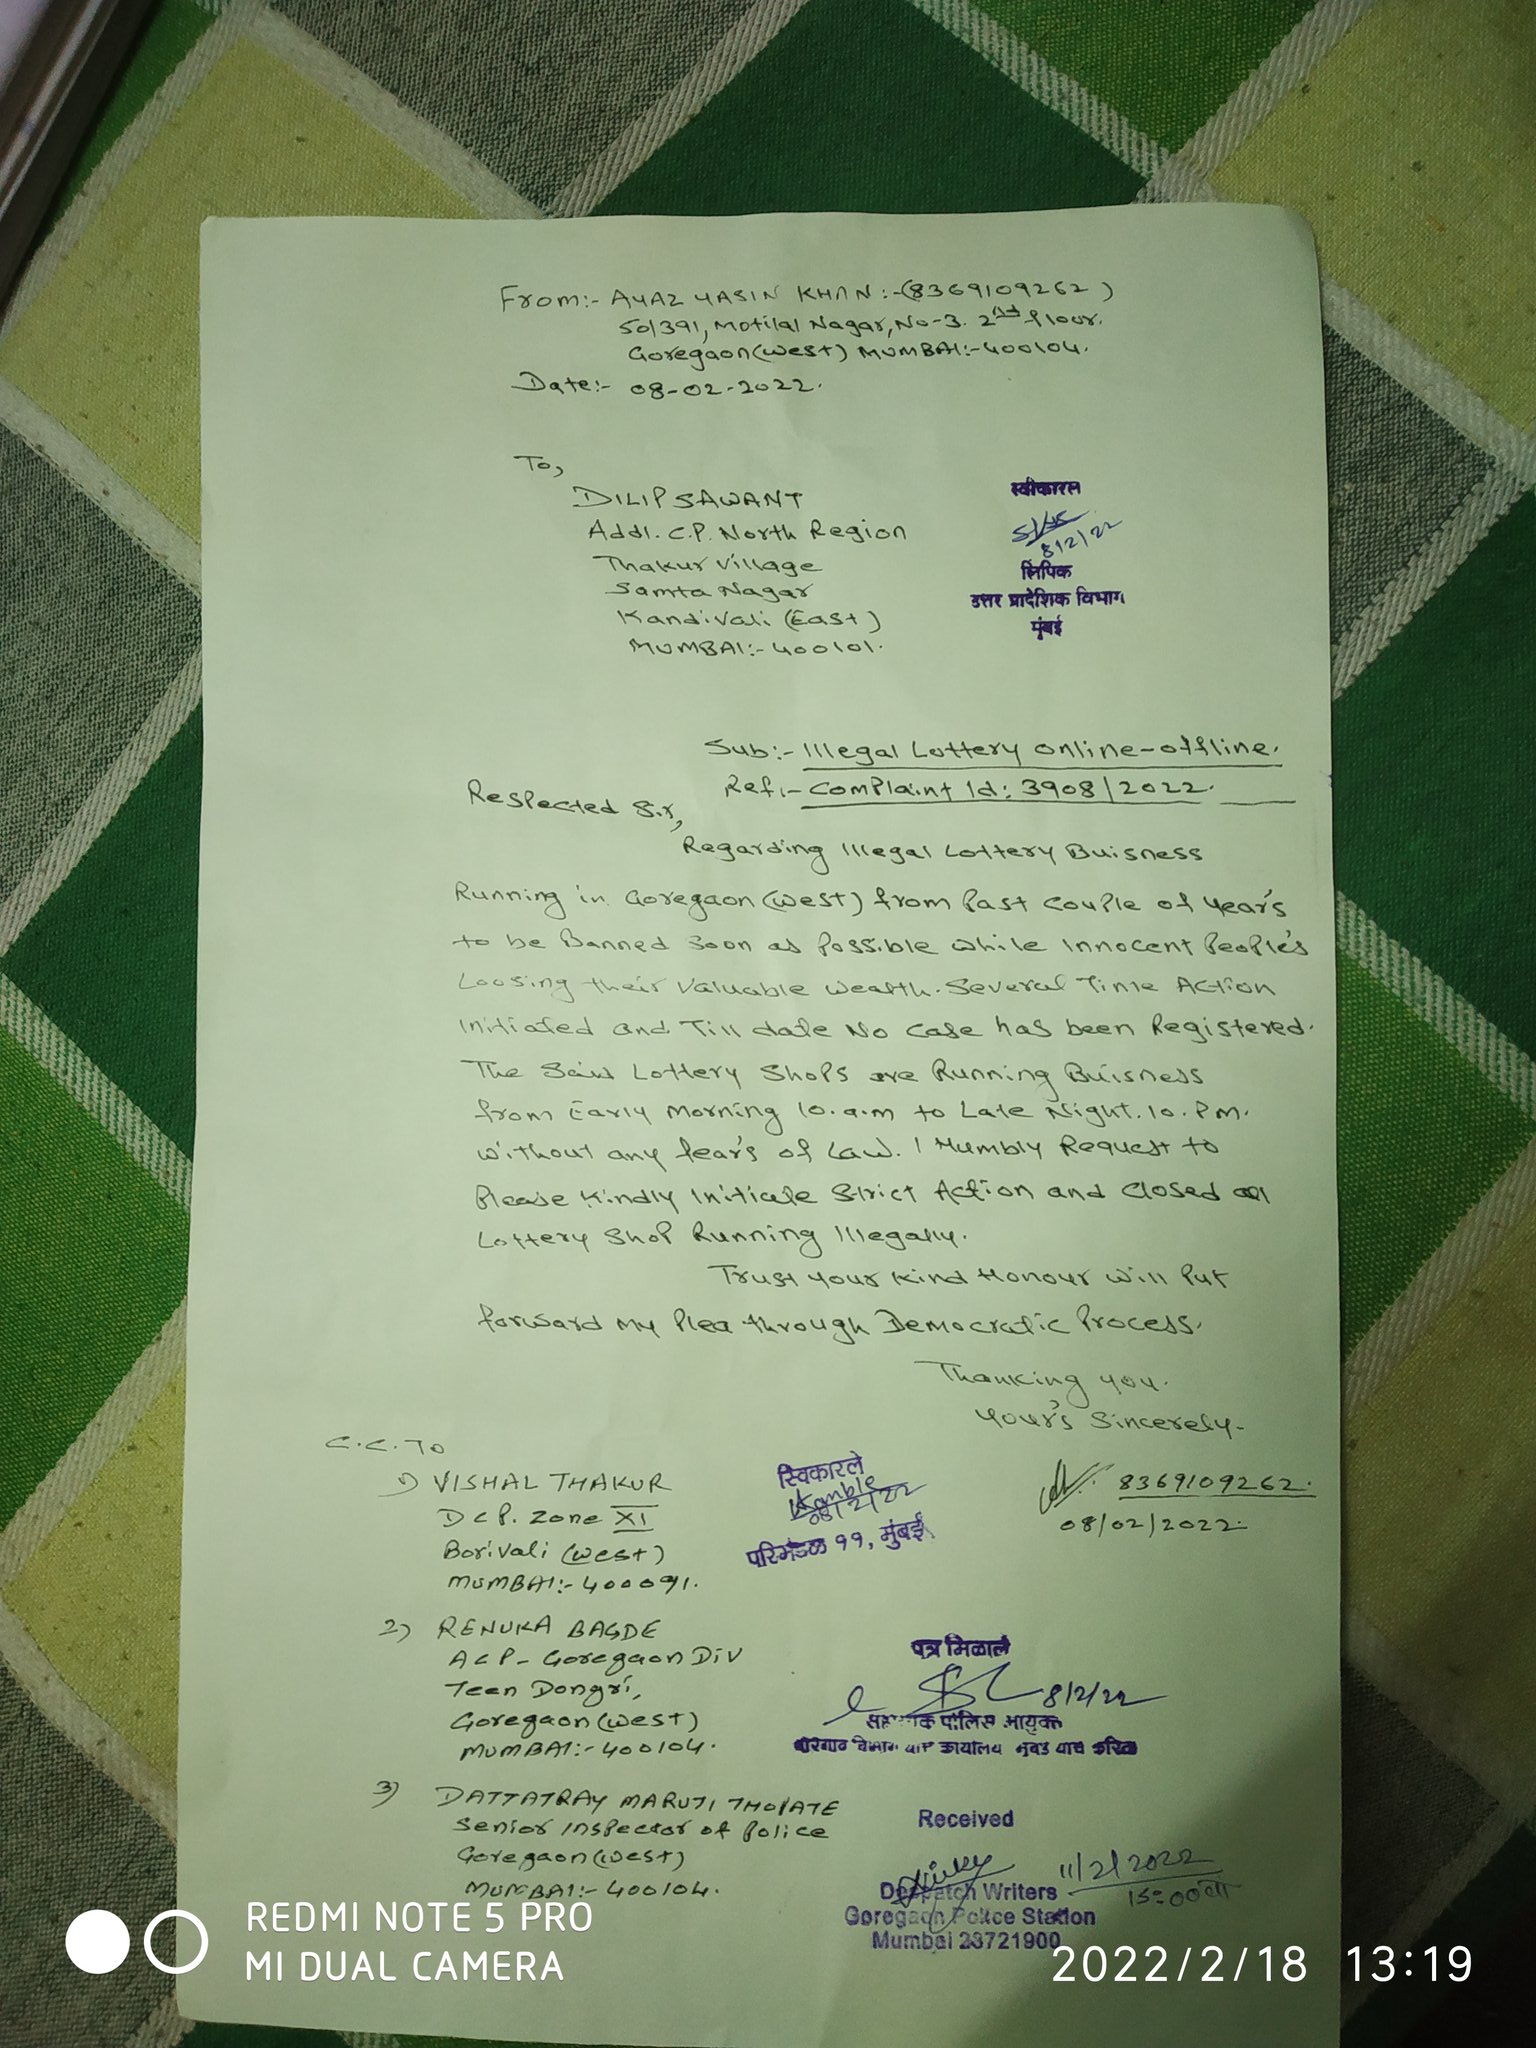 From:- AYAZ YASIN KHAN:-(8369109262)
50/391, Motilal Nagar, No-3. 2nd flour.
Goregaon (West) MUMBAI:-400104.
Date:- 08-02-2022.
To,
DILIP SAWANT
Addl. C.P. North Region
Thakur Village
Samta Nagar
Kandivali (East)
MUMBAI:- 400101.
स्वीकारल
8/2/22
लिपिक
उत्तर प्रादेशिक विभाग
मुंबई
Sub:- Illegal Lottery online-offline.
Ref:- Complaint Id: 3908/2022.
Respected Sir,
Regarding Illegal Lottery Buisness
Running in Goregaon (West) from Past couple of Year's
to be Banned Soon as Possible While Innocent People's
Loosing their Valuable Wealth. Several Time Action
Initiated and Till date No Case has been Registered.
The Said Lottery Shops are Running Buisness
from Early Morning 10.a.m to Late Night. 10. P.m.
Without any fear's of Law. I Humbly Request to
Please Kindly Initiate Strict Action and Closed all
Lottery Shop Running Illegally.
Trust your Kind Honour Will Put
forward My Plea through Democratic Process.
Thanking you.
Your's Sincerely.
8369109262.
08/02/2022.
C.C. TO
1) VISHAL THAKUR
D C P. Zone XI
Borivali (West)
MUMBAI:- 400091.
स्विकारले
Kamble
08/2/22
परिमंडळ ११, मुंबई
2) RENUKA BAGDE
A C P - Goregaon DIV
Teen Dongri,
Goregaon (West)
MUMBAI:- 400104.
पत्र मिळाले
8/2/22
पोलिस आयुक्त
कार्यालय
3) DATTATRAY MARUTI THOPATE
Senior Inspector of Police
Goregaon (West)
MUMBAI:- 400104.
Received
11/2/2022
15:00वा
Despatch Writers
Goregaon Police Station
Mumbai 28721900
REDMI NOTE 5 PRO
MI DUAL CAMERA
2022/2/18 13:19